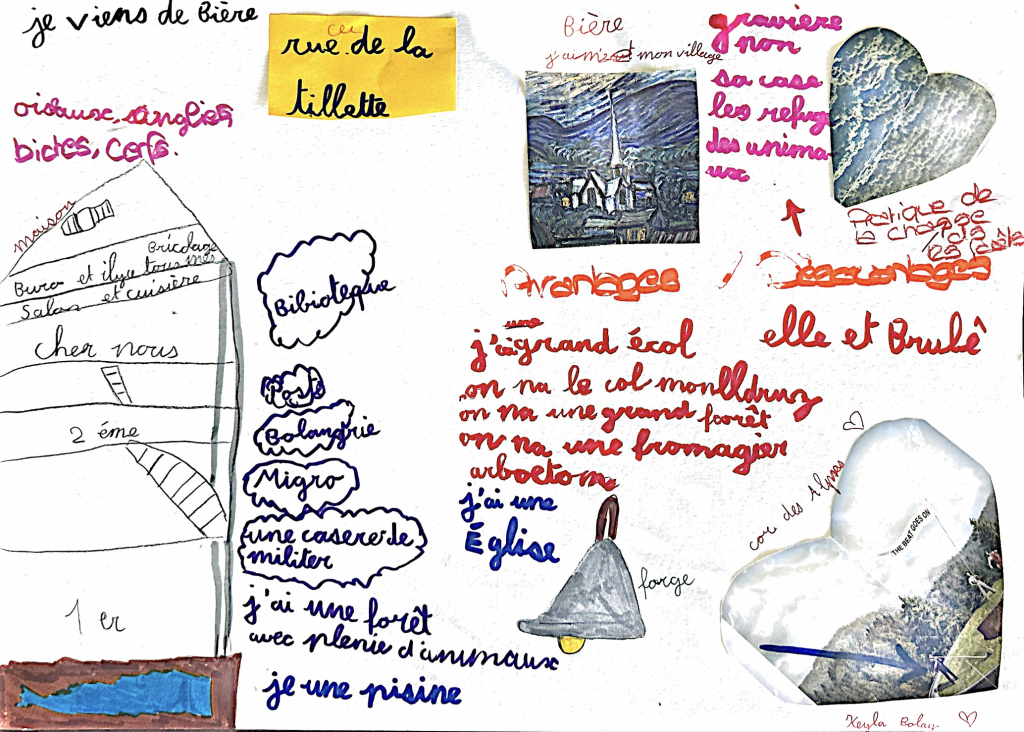 je viens de Bière
rue de la
tillette
oiseaux, sanglies
biches, cerfs.
maison
Bricolage
Buro et ilya tous mes
Salon et cuisière
cher nous
2 éme
1 er
Bibioteque
Poste
Bolangrie
Migro
une caserede
militer
j'ai une forêt
avec plenie d'animaux
je une pisine
Bière
mon village
gravière
non
sa case
les refug
des anima
ux
Pratique de
la chasse
Avantages / Desavantages
elle et Brulê
j'ai une grand écol
on na le col monlldruz
on na une grand forêt
on na une fromagier
arboetom
j'ai une
Église
forge
cor des Alpes
THE BEAT GOES ON
Keyla Bolay